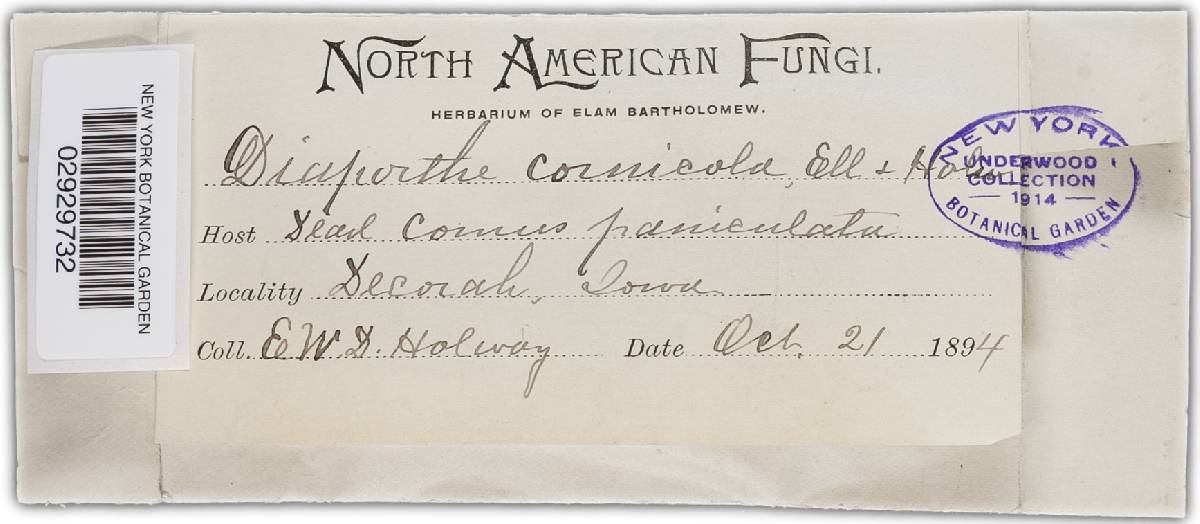 NORTH AMERICAN FUNGI.
HERBARIUM OF ELAM BARTHOLOMEW.
Diaporthe cornicola, Ell & Holw
Host Dead Cornus paniculata
Locality Decorah, Iowa
Coll. E W. D. Holway Date Oct. 21 1894
NEW YORK
UNDERWOOD
COLLECTION
1914
BOTANICAL GARDEN
NEW YORK BOTANICAL GARDEN
02929732